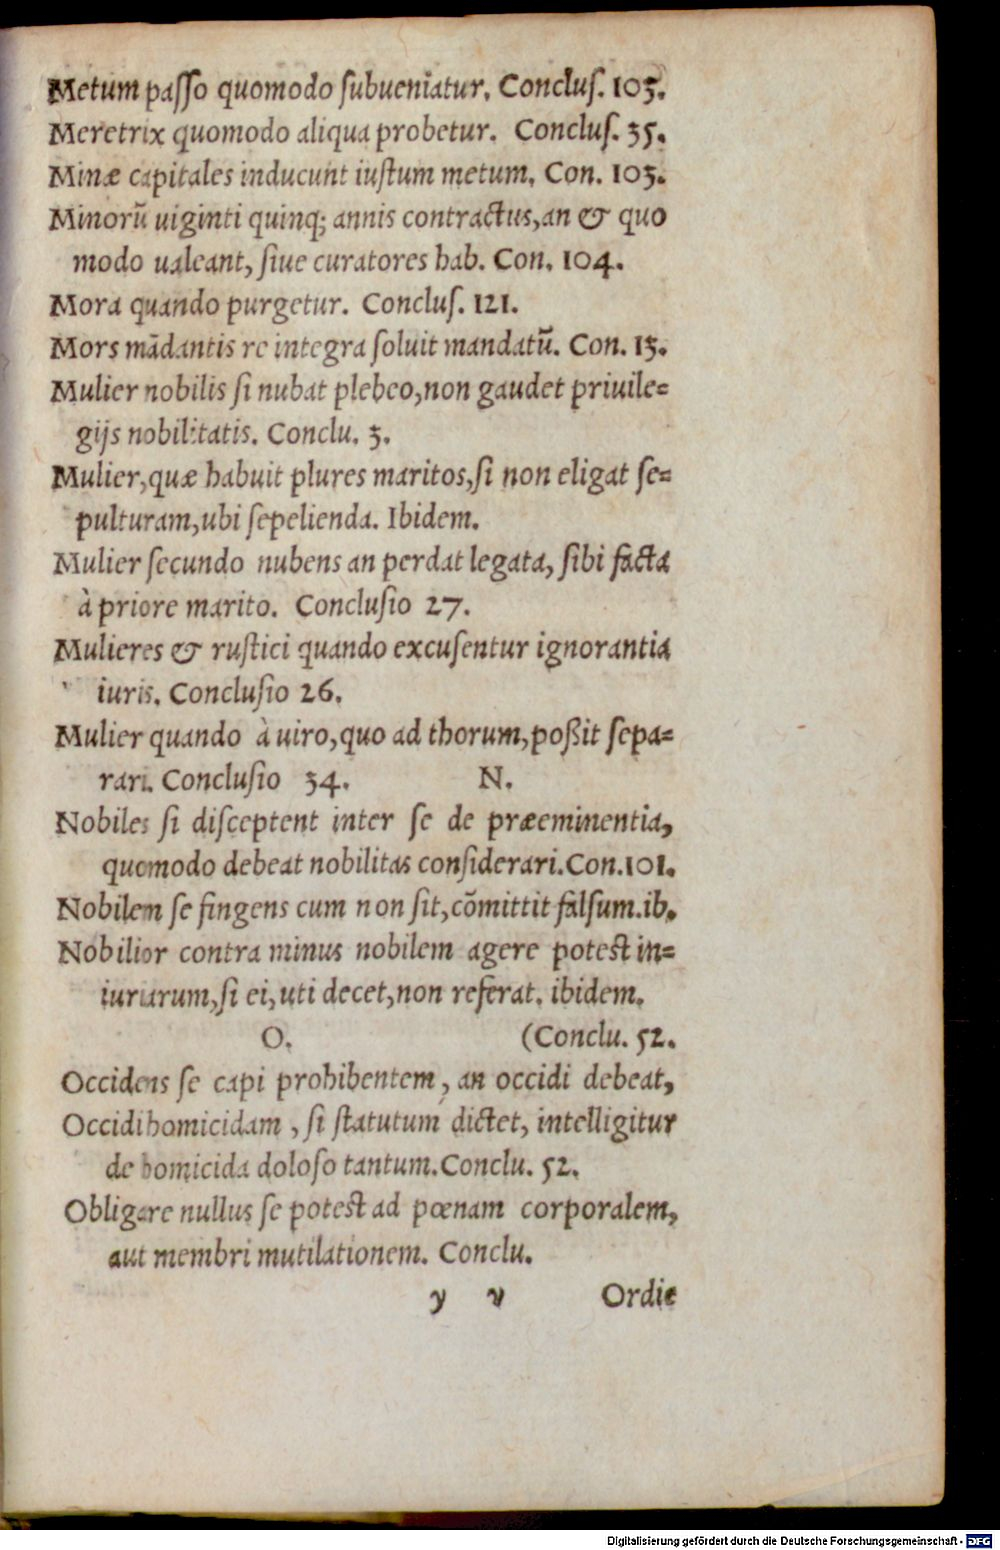 Metum paſſo quomodo ſubueniatur. Concluſ. 103.
Meretrix quomodo aliqua probetur. Concluſ. 35.
Minæ capitales inducunt iuſtum metum. Con. 103.
Minorū uiginti quinq; annis contractus, an & quo
modo ualeant, ſiue curatores hab. Con. 104.
Mora quando purgetur. Concluſ. 121.
Mors mādantis re integra ſoluit mandatū. Con. 13.
Mulier nobilis ſi nubat plebeo, non gaudet priuile=
gijs nobilitatis. Conclu. 3.
Mulier, quæ habuit plures maritos, ſi non eligat ſe=
pulturam, ubi ſepelienda. Ibidem.
Mulier ſecundo nubens an perdat legata, ſibi facta
à priore marito. Concluſio 27.
Mulieres & ruſtici quando excuſentur ignorantia
iuris. Concluſio 26.
Mulier quando à uiro, quo ad thorum, poßit ſepa=
rari. Concluſio 34. N.
Nobiles ſi diſceptent inter ſe de præeminentia,
quomodo debeat nobilitas conſiderari. Con. 101.
Nobilem ſe fingens cum non ſit, cōmittit falſum. ib.
Nobilior contra minus nobilem agere poteſt in=
iuriarum, ſi ei, uti decet, non referat. ibidem.
O. (Conclu. 52.
Occidens ſe capi prohibentem, an occidi debeat,
Occidi homicidam, ſi ſtatutum dictet, intelligitur
de homicida doloſo tantum. Conclu. 52.
Obligare nullus ſe poteſt ad pœnam corporalem,
aut membri mutilationem. Conclu.
y v Ordie
Digitalisierung gefördert durch die Deutsche Forschungsgemeinschaft - DFG